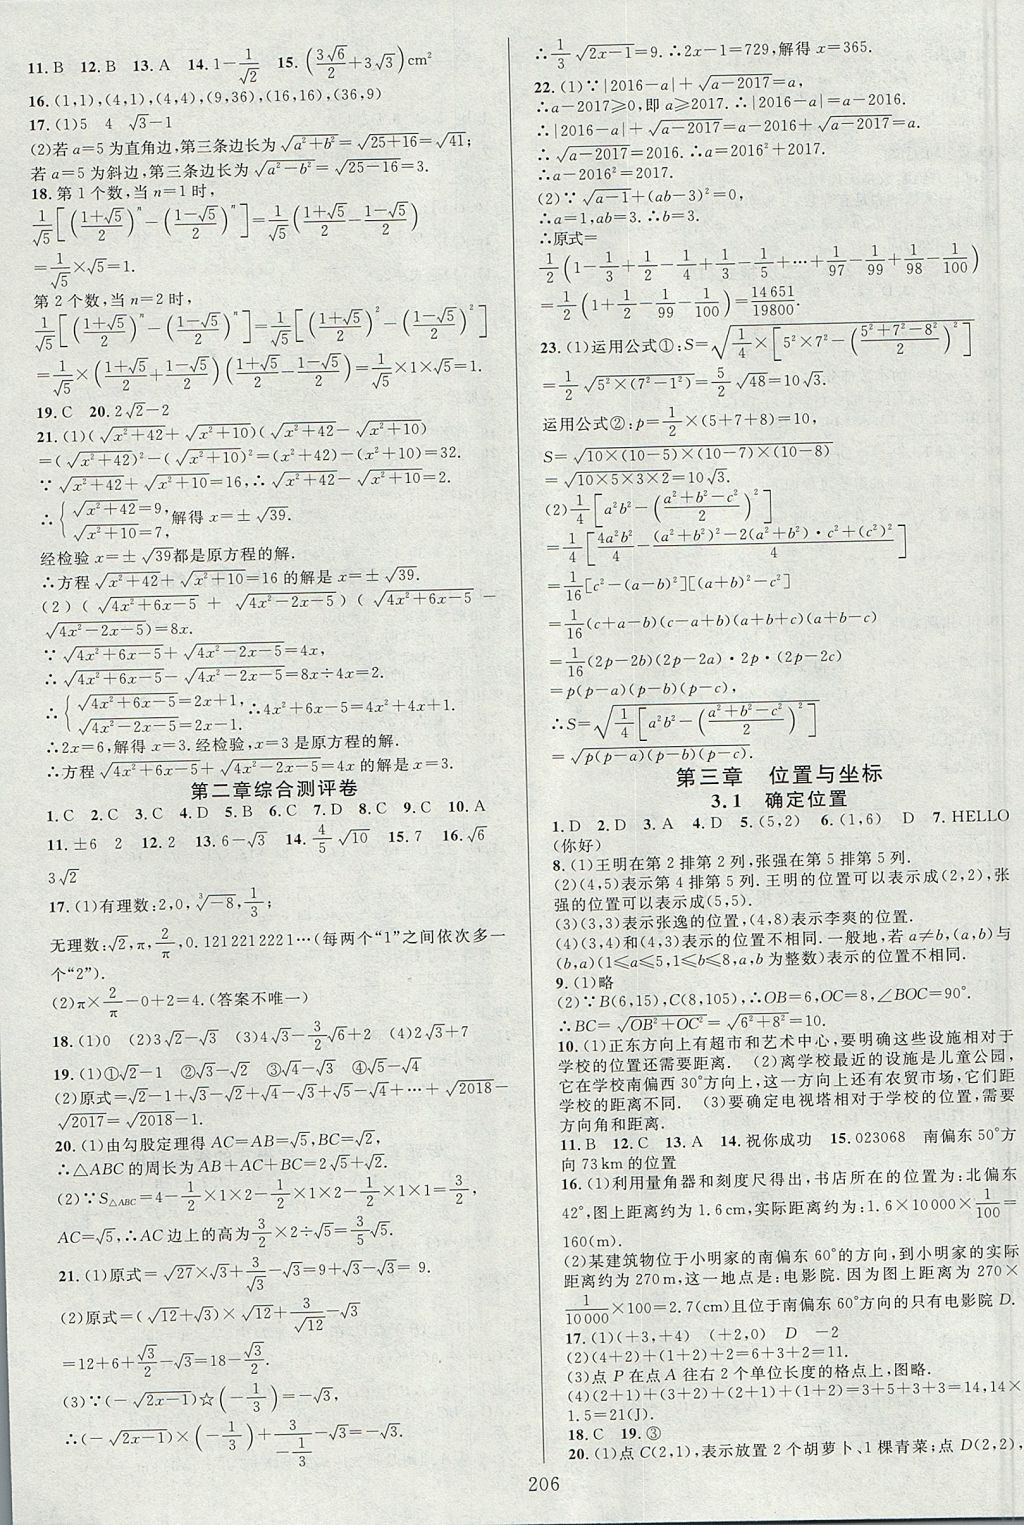 11.B 12.B 13.A 14.1－1/√2 15.(3√6/2＋3√3)cm²
16.(1,1),(4,1),(4,4),(9,36),(16,16),(36,9)
17.(1)5 4 √3－1
(2)若a=5为直角边,第三条边长为√(a²＋b²)=√(25＋16)=√41;
若a=5为斜边,第三条边长为√(a²－b²)=√(25－16)=3.
18.第1个数,当n=1时,
1/√5[((1＋√5)/2)ⁿ－((1－√5)/2)ⁿ]=1/√5((1＋√5)/2－(1－√5)/2)
=1/√5×√5=1.
第2个数,当n=2时,
1/√5[((1＋√5)/2)ⁿ－((1－√5)/2)ⁿ]=1/√5[((1＋√5)/2)²－((1－√5)/2)²]
=1/√5×((1＋√5)/2＋(1－√5)/2)((1＋√5)/2－(1－√5)/2)=1/√5×1×√5=1.
19.C 20.2√2－2
21.(1)(√(x²＋42)＋√(x²＋10))(√(x²＋42)－√(x²＋10))
=(√(x²＋42))²－(√(x²＋10))²=(x²＋42)－(x²＋10)=32.
∵√(x²＋42)＋√(x²＋10)=16,∴√(x²＋42)－√(x²＋10)=2.
∴{√(x²＋42)=9, √(x²＋10)=7, 解得x=±√39.
经检验x=±√39都是原方程的解.
∴方程√(x²＋42)＋√(x²＋10)=16的解是x=±√39.
(2)(√(4x²＋6x－5)＋√(4x²－2x－5))(√(4x²＋6x－5)－
√(4x²－2x－5))=8x.
∵√(4x²＋6x－5)＋√(4x²－2x－5)=4x,
∴√(4x²＋6x－5)－√(4x²－2x－5)=2.
∴{√(4x²＋6x－5)=2x＋1, √(4x²－2x－5)=2x－1. ∴4x²＋6x－5=4x²＋4x＋1.
∴2x=6,解得x=3.经检验,x=3是原方程的解.
∴方程√(4x²＋6x－5)＋√(4x²－2x－5)=4x的解是x=3.
第二章综合测评卷
1.C 2.D 3.C 4.D 5.B 6.C 7.D 8.C 9.C 10.A
11.±6 2 12.2 13.6－√3 14.4/5√10 15.7 16.√6
3√2
17.(1)有理数:2,0,³√－8,1/3;
无理数:√2,π,2/π,0.1212212221…(每两个“1”之间依次多一
个“2”).
(2)π×2/π－0＋2=4.(答案不唯一)
18.(1)0 (2)3√2－√3 (3)4√3－3/2√6＋2 (4)2√3＋7
19.(1)①√2－1 ②√3－√2 ③√4－√3 ④√5－√4
(2)原式=√2－1＋√3－√2＋√4－√3＋√5－√4＋…＋√2018－
√2017=√2018－1.
20.(1)由勾股定理得AC=AB=√5,BC=√2,
∴△ABC的周长为AB＋AC＋BC=2√5＋√2.
(2)∵S△ABC=4－1/2×1×2－1/2×1×2－1/2×1×1=3/2,
AC=√5,∴AC边上的高为3/2×2÷√5=3/5√5.
21.(1)原式=√27×√3＋√3－√3=9＋√3－√3=9.
(2)原式=(√12＋√3)×√12＋3/√12－√3
=12＋6＋√3/2－√3=18－√3/2.
(3)∵(－√(2x－1))☆(－1/3)=－√3,
∴(－√(2x－1))×(－1/3)＋3/(－1/(1/3))－√3=－√3.
∴1/3√(2x－1)=9.∴2x－1=729,解得x=365.
22.(1)∵|2016－a|＋√(a－2017)=a,
∴a－2017≥0,即a≥2017.∴|2016－a|=a－2016.
∴|2016－a|＋√(a－2017)=a－2016＋√(a－2017)=a.
∴√(a－2017)=2016.∴a=2016²＋2017.
∴a－2016²=2017.
(2)∵√(a－1)＋(ab－3)²=0,
∴a=1,ab=3.∴b=3.
∴原式=
1/2(1－1/3＋1/2－1/4＋1/3－1/5＋…＋1/97－1/99＋1/98－1/100)
=1/2(1＋1/2－1/99－1/100)=14651/19800.
23.(1)运用公式①:S=√(1/4×[5²×7²－((5²＋7²－8²)/2)²])
=1/2√(5²×(7²－1²))=5/2√48=10√3.
运用公式②:p=1/2×(5＋7＋8)=10,
S=√(10×(10－5)×(10－7)×(10－8))
=√(10×5×3×2)=10√3.
(2)1/4[a²b²－((a²＋b²－c²)/2)²]
=1/4[4a²b²/4－((a²＋b²)²－2(a²＋b²)·c²＋(c²)²)/4]
=1/16[c²－(a－b)²][(a＋b)²－c²]
=1/16(c＋a－b)(c－a＋b)(a＋b＋c)(a＋b－c)
=1/16(2p－2b)(2p－2a)·2p·(2p－2c)
=p(p－a)(p－b)(p－c),
∴S=√(1/4[a²b²－((a²＋b²－c²)/2)²])
=√(p(p－a)(p－b)(p－c)).
第三章 位置与坐标
3.1 确定位置
1.D 2.D 3.A 4.D 5.(5,2) 6.(1,6) D 7.HELLO
(你好)
8.(1)王明在第2排第2列,张强在第5排第5列.
(2)(4,5)表示第4排第5列.王明的位置可以表示成(2,2),张
强的位置可以表示成(5,5).
(3)(3,3)表示张逸的位置,(4,8)表示李爽的位置.
(4)(3,4)和(4,3)表示的位置不相同.一般地,若a≠b,(a,b)与
(b,a)(1≤a≤5,1≤b≤8,a,b为整数)表示的位置不相同.
9.(1)略
(2)∵B(6,15),C(8,105),∴OB=6,OC=8,∠BOC=90°.
∴BC=√(OB²＋OC²)=√(6²＋8²)=10.
10.(1)正东方向上有超市和艺术中心,要明确这些设施相对于
学校的位置还需要距离. (2)离学校最近的设施是儿童公园,
它在学校南偏西30°方向上,这一方向上还有农贸市场,它们距
学校的距离不同. (3)要确定电视塔相对于学校的位置,需要
方向角和距离.
11.B 12.C 13.A 14.祝你成功 15.023068 南偏东50°方
向73km的位置
16.(1)利用量角器和刻度尺得出,书店所在的位置为:北偏东
42°,图上距离约为1.6cm,实际距离约为:1.6×10000×1/100=
160(m).
(2)某建筑物位于小明家的南偏东60°的方向,到小明家的实际
距离约为270m,这一地点是:电影院.因为图上距离为270×
1/10000×100=2.7(cm)且位于南偏东60°方向的只有电影院D.
17.(1)(＋3,＋4) (＋2,0) D －2
(2)(2)(＋4)＋2＋(＋2)＋1＋2=6＋3＋2=11.
(3)点P在点A往右2个单位长度的格点上,图略.
(4)(2)＋(1)＋(3)＋(2)＋(2)＋(1)＋(1)＋(2)=3＋5＋3＋3=14,14×
1.5=21(J).
18.C 19.③
20.(1)点C(2,1),表示放置2个胡萝卜、1棵青菜;点D(2,2),
206